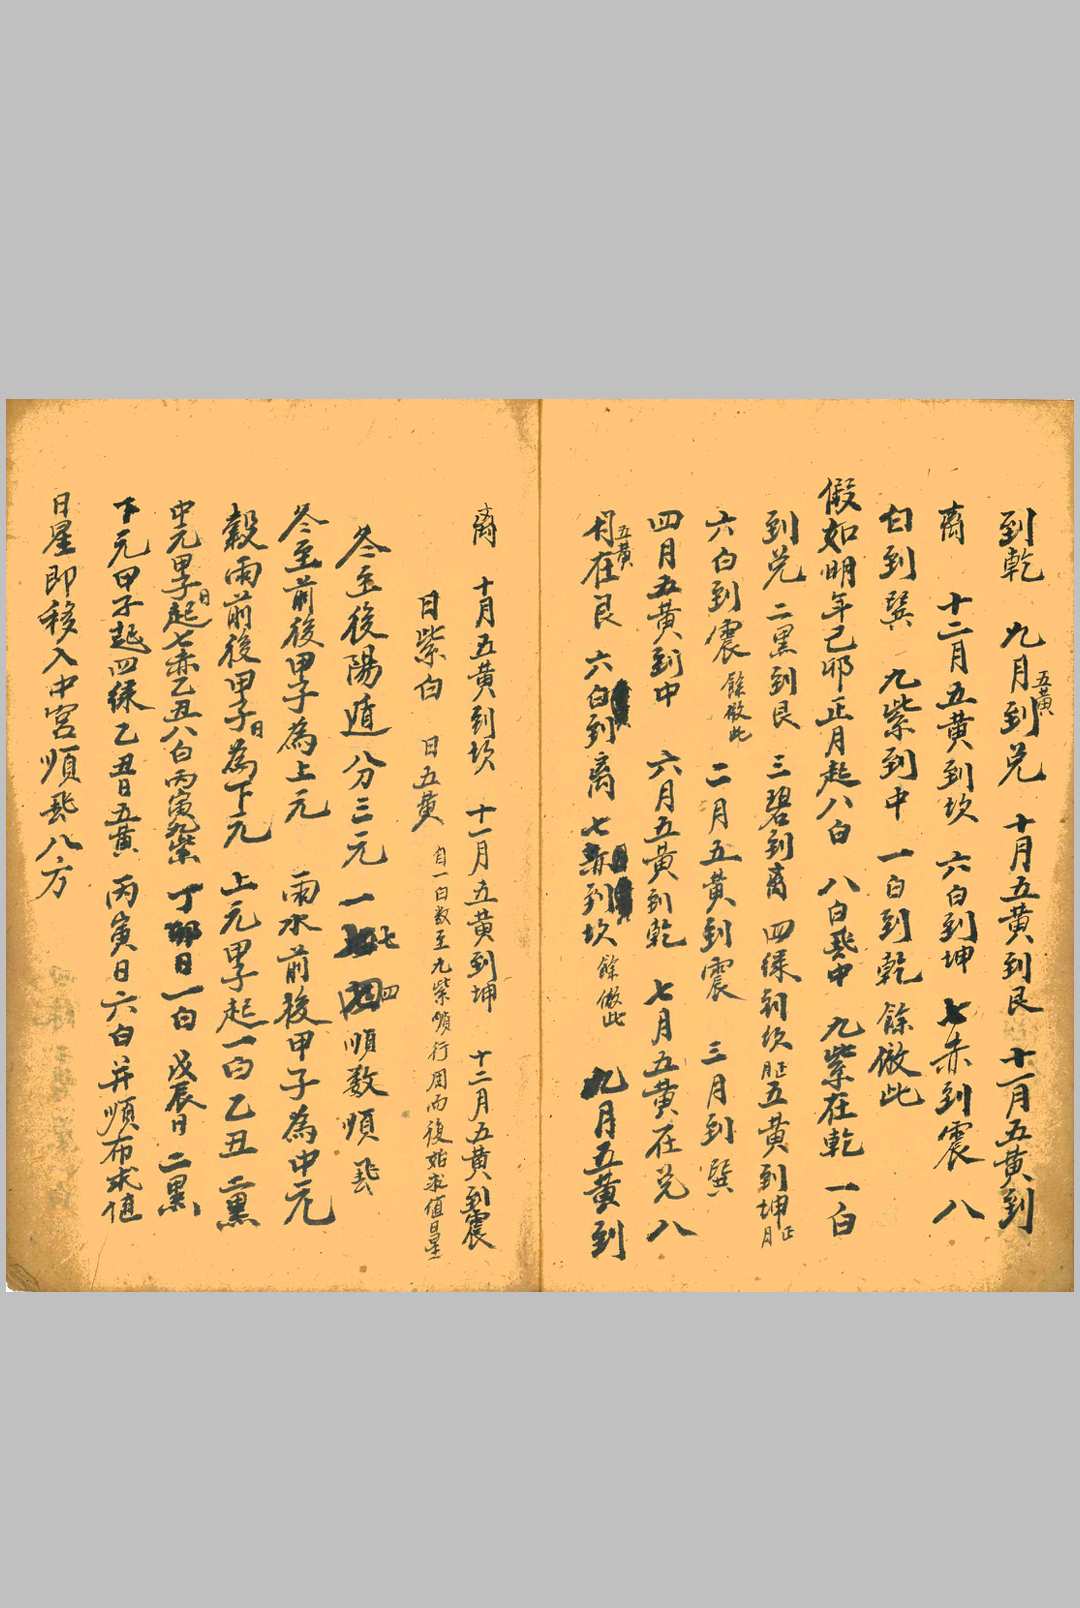 到乾　九月五黃到兌　十月五黃到艮　十一月五黃到
离　十二月五黃到坎　六白到坤　七赤到震　八
白到巽　九紫到中　一白到乾　餘倣此
假如明年己卯正月起八白　八白飛中　九紫在乾　一白
到兌　二黑到艮　三碧到离　四綠到坎　正月五黃到坤正月
六白到震　餘倣此　二月五黃到震　三月到巽
四月五黃到中　六月五黃到乾　七月五黃在兌　八
月五黃在艮　六白到离　七赤到坎　餘倣此　九月五黃到
离　十月五黃到坎　十一月五黃到坤　十二月五黃到震
日紫白　日五黃　自一白数至九紫順行周而復始求值日星
冬至後陽遁分三元　一七四順数順飛
冬至前後甲子為上元　雨水前後甲子為中元
穀雨前後甲子日為下元　上元甲子起一白乙丑二黑
中元甲子日起七赤乙丑八白丙寅九紫　丁卯日一白　戊辰日二黑
下元甲子起四綠乙丑日五黃　丙寅日六白并順布求值
日星即移入中宮順飛八方